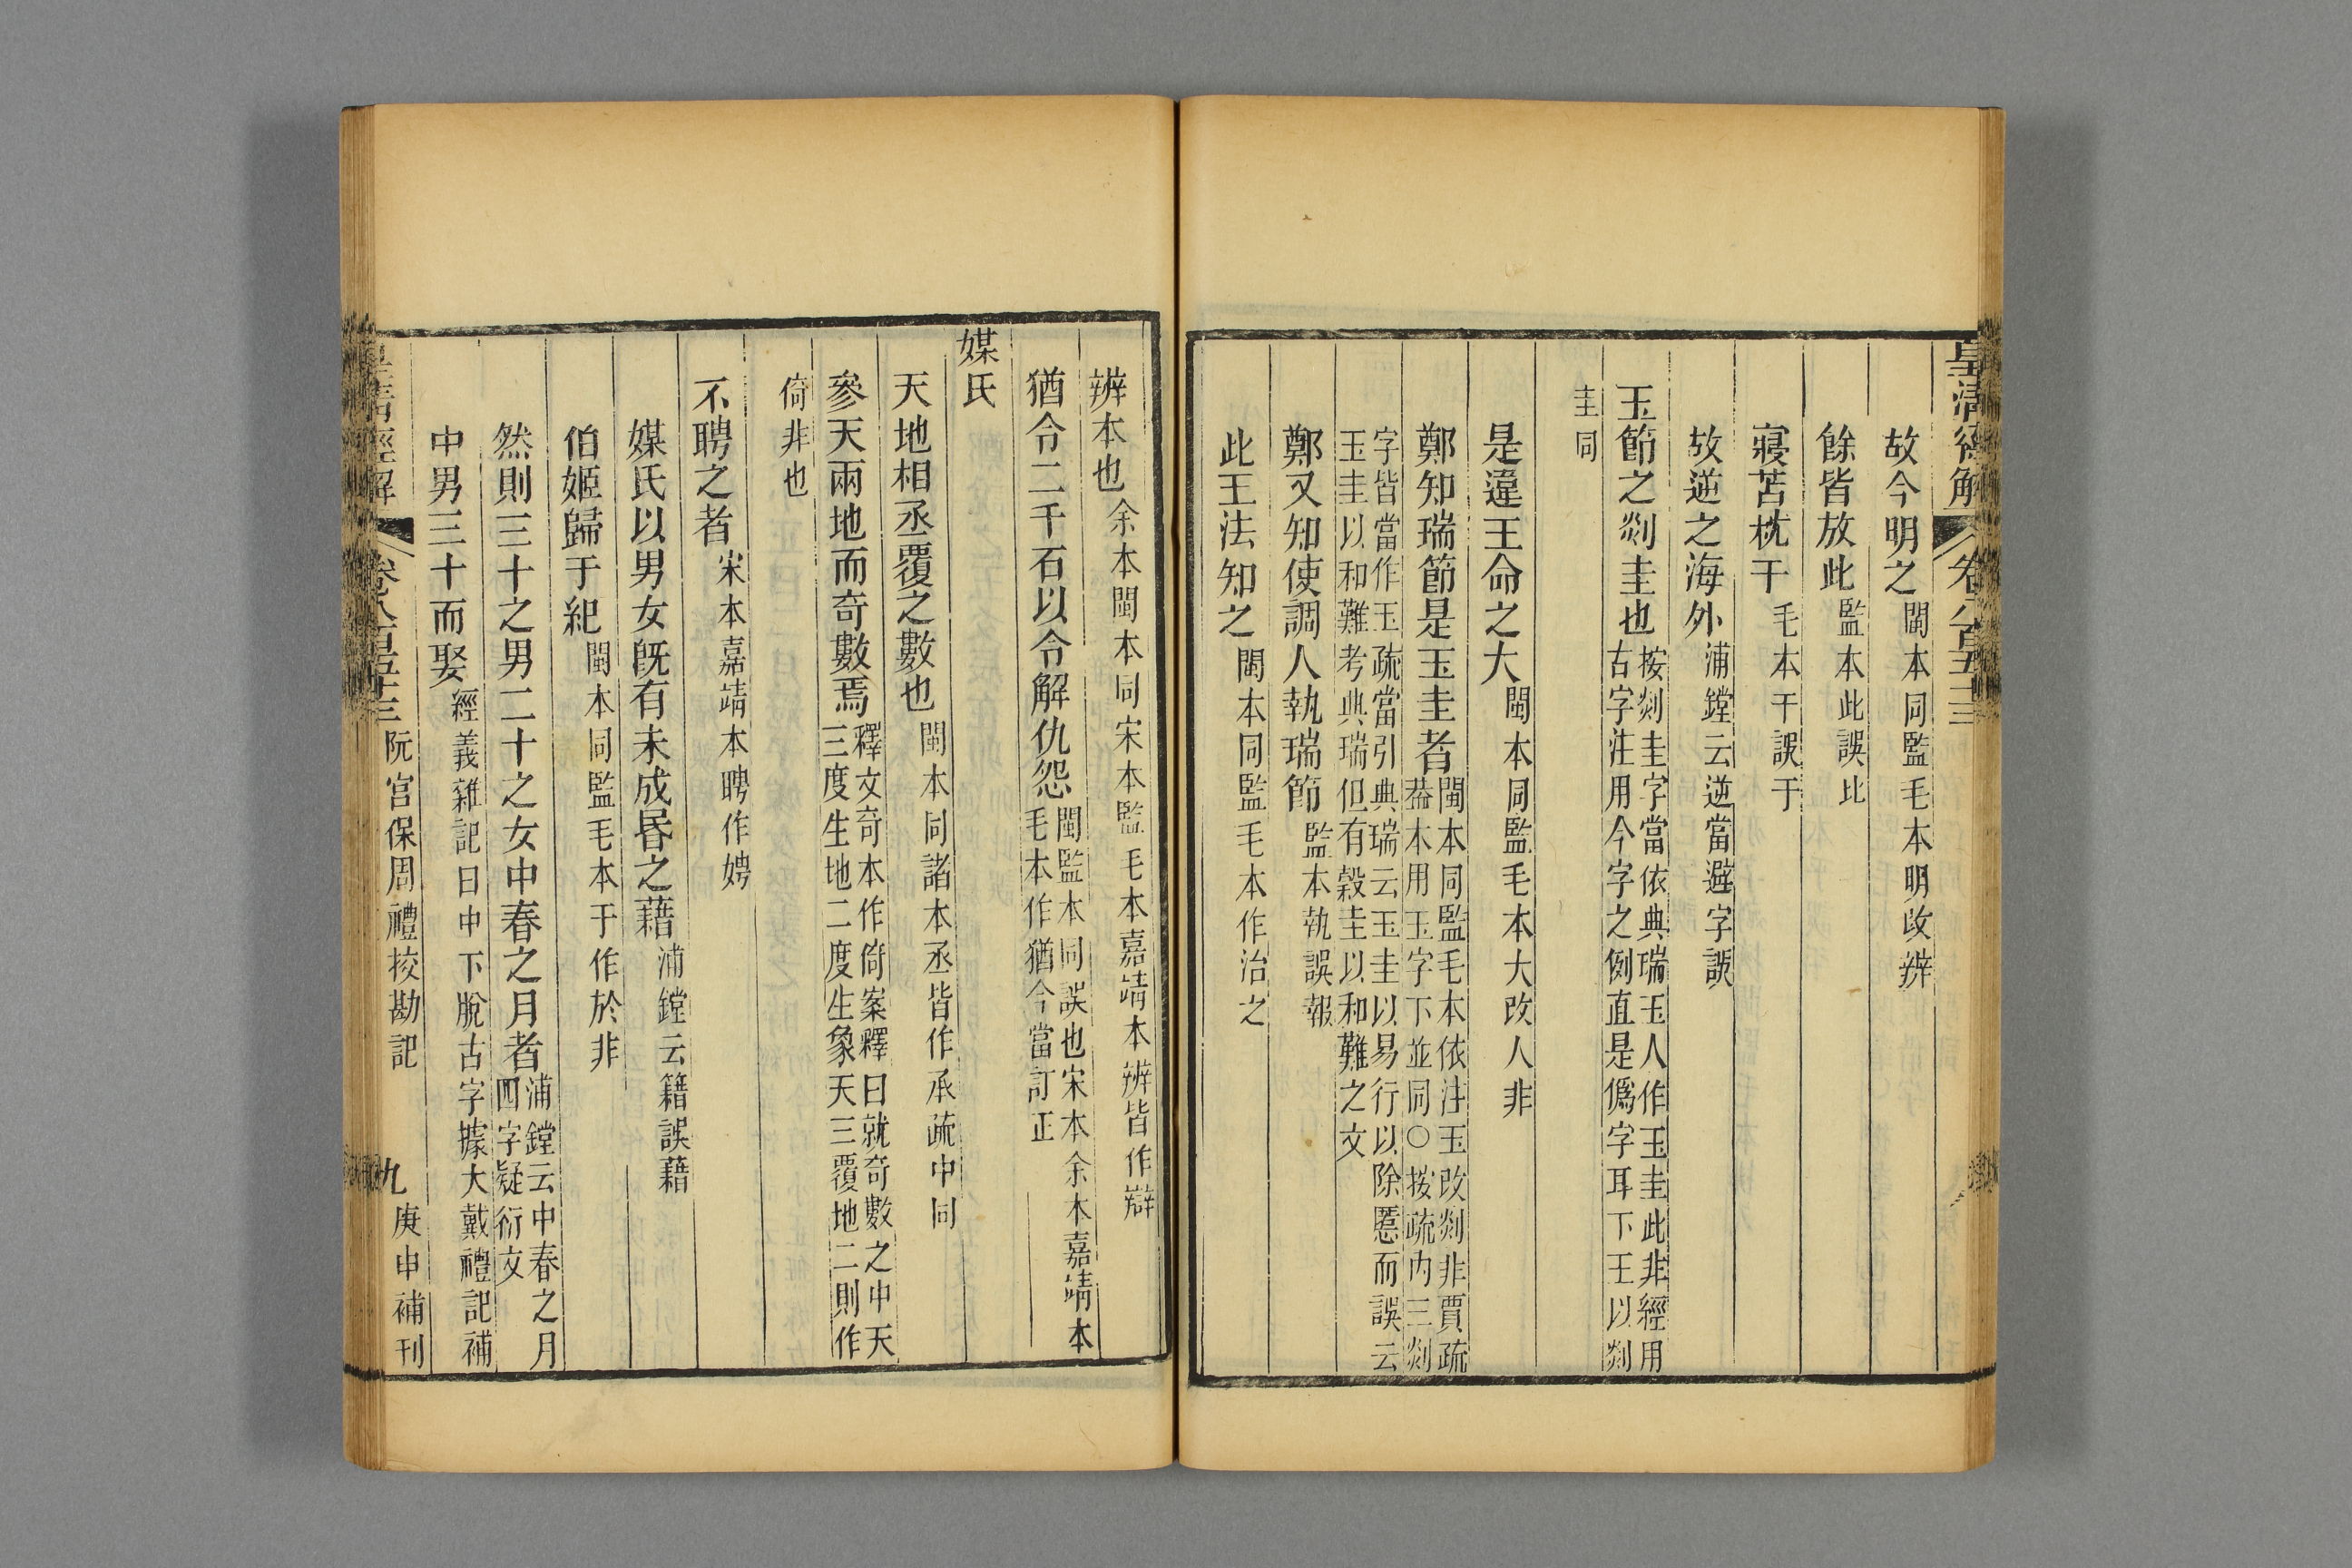 皇清經解 卷八百五十三
故今明之閩本同監毛本明改辨
餘皆放此監本此誤比
寢苫枕干毛本干誤于
故逆之海外浦鏜云逆當避字誤
玉節之剡圭也按剡圭字當依典瑞玉人作玉圭此非經用
古字注用今字之例直是僞字耳下王以剡
圭同
是違王命之大閩本同監毛本大改人非
鄭知瑞節是玉圭者閩本同監毛本依注玉改剡非賈疏
葢本用玉字下並同○按疏内三剡
字皆當作玉疏當引典瑞云玉圭以易行以除慝而誤云
玉圭以和難考典瑞但有穀圭以和難之文
鄭又知使調人執瑞節監本執誤報
此王法知之閩本同監毛本作治之
辨本也余本閩本同宋本監毛本嘉靖本辨皆作辯
猶令二千石以令解仇怨閩監本同誤也宋本余本嘉靖本
毛本作猶今當訂正
媒氏
天地相丞覆之數也閩本同諸本丞皆作承疏中同
參天兩地而奇數焉釋文奇本作倚案釋曰就奇數之中天
三度生地二度生象天三覆地二則作
倚非也
不聘之者宋本嘉靖本聘作娉
媒氏以男女旣有未成昬之藉浦鏜云籍誤藉
伯姬歸于紀閩本同監毛本于作於非
然則三十之男二十之女中春之月者浦鏜云中春之月
四字疑衍文
中男三十而娶經義雜記曰中下脫古字據大戴禮記補
皇清經解 卷八百五十三 阮宫保周禮挍勘記 九 庚申補刊